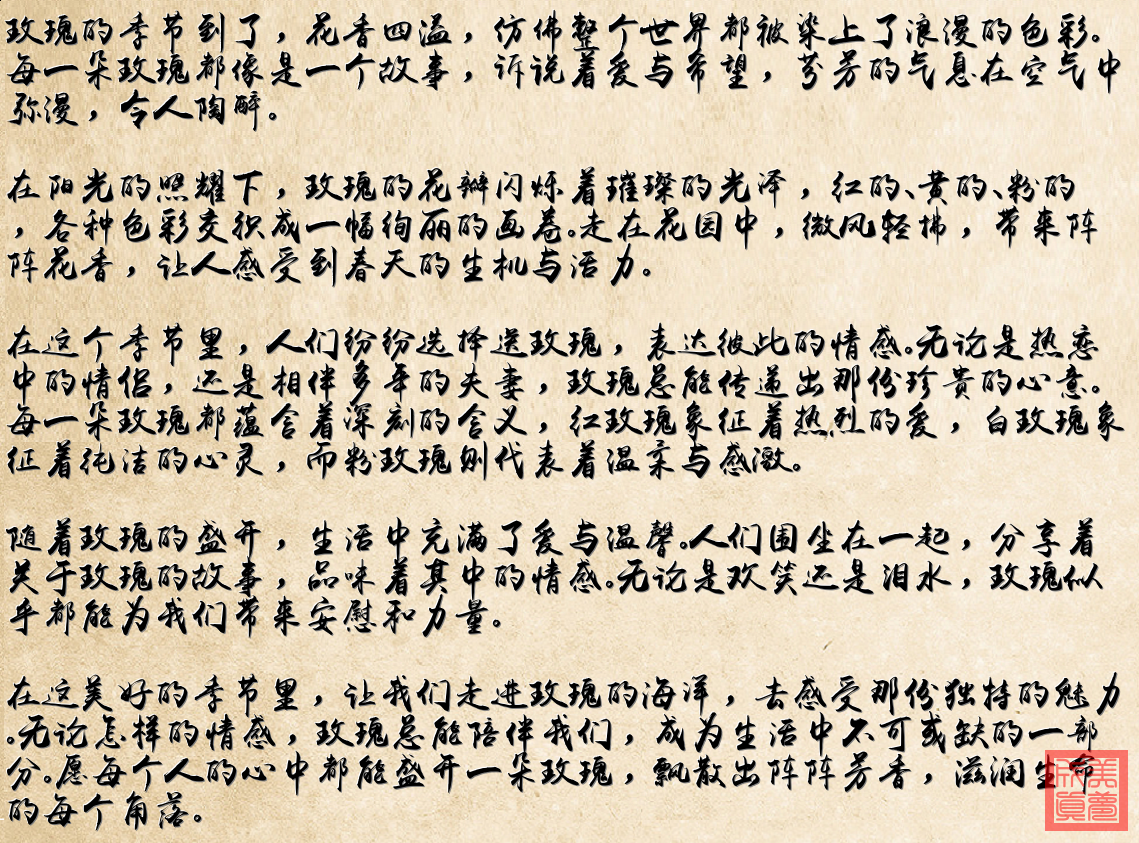 玫瑰的季节到了，花香四溢，仿佛整个世界都被染上了浪漫的色彩。
每一朵玫瑰都像是一个故事，诉说着爱与希望，芬芳的气息在空气中
弥漫，令人陶醉。
在阳光的照耀下，玫瑰的花瓣闪烁着璀璨的光泽，红的、黄的、粉的
，各种色彩交织成一幅绚丽的画卷。走在花园中，微风轻拂，带来阵
阵花香，让人感受到春天的生机与活力。
在这个季节里，人们纷纷选择送玫瑰，表达彼此的情感。无论是热恋
中的情侣，还是相伴多年的夫妻，玫瑰总能传递出那份珍贵的心意。
每一朵玫瑰都蕴含着深刻的含义，红玫瑰象征着热烈的爱，白玫瑰象
征着纯洁的心灵，而粉玫瑰则代表着温柔与感激。
随着玫瑰的盛开，生活中充满了爱与温馨。人们围坐在一起，分享着
关于玫瑰的故事，品味着其中的情感。无论是欢笑还是泪水，玫瑰似
乎都能为我们带来安慰和力量。
在这美好的季节里，让我们走进玫瑰的海洋，去感受那份独特的魅力
。无论怎样的情感，玫瑰总能陪伴我们，成为生活中不可或缺的一部
分。愿每个人的心中都能盛开一朵玫瑰，飘散出阵阵芳香，滋润生命
的每个角落。